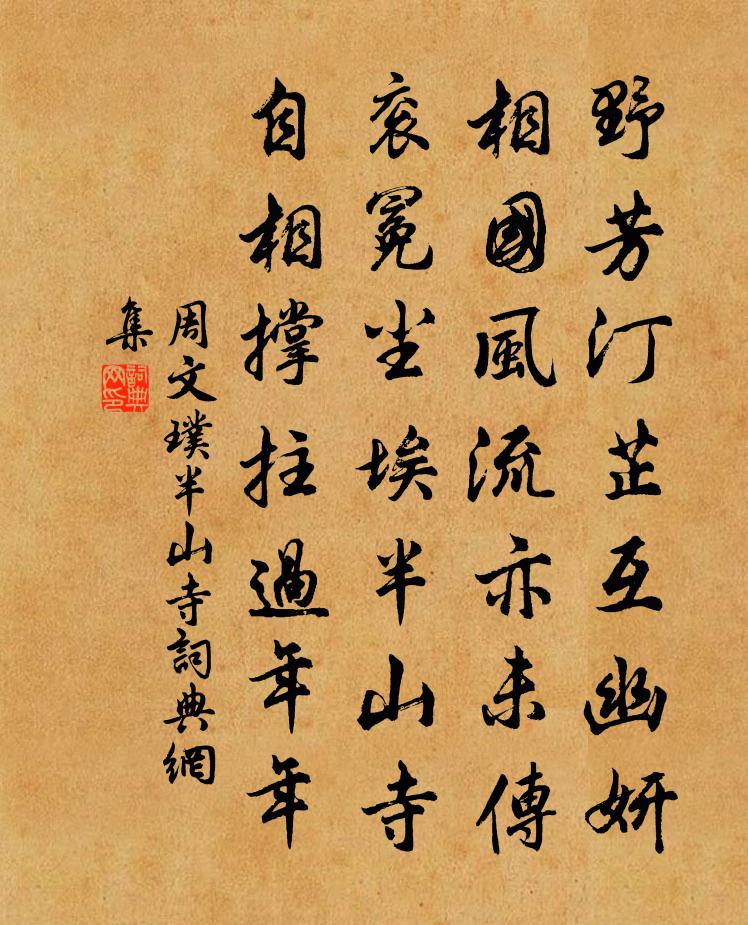 野芳汀芷互幽妍
相國風流亦未傳
衮冕尘埃半山寺
自相撐拄過年年
周文璞半山寺詞典網
集
詞典网印